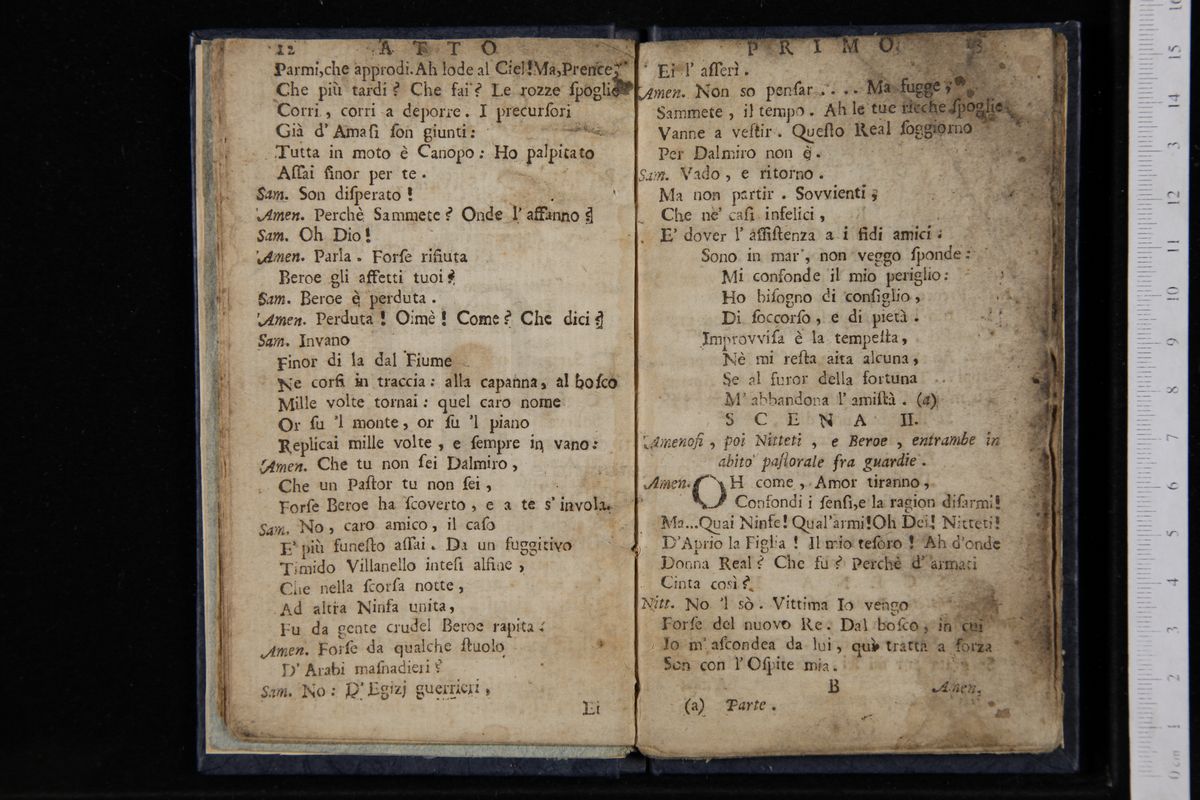 12 ATTO
Parmi,che approdi.Ah lode al Ciel!Ma,Prence,
Che più tardi? Che fai? Le rozze ſpoglie
Corri, corri a deporre. I precurſori
Già d'Amaſi ſon giunti:
Tutta in moto è Canopo: Ho palpitato
Aſſai finor per te.
Sam. Son diſperato!
Amen. Perchè Sammete? Onde l'affanno?
Sam. Oh Dio!
Amen. Parla. Forſe rifiuta
Beroe gli affetti tuoi?
Sam. Beroe è perduta.
Amen. Perduta! Oimè! Come? Che dici?
Sam. Invano
Finor di la dal Fiume
Ne corſi in traccia: alla capanna, al boſco
Mille volte tornai: quel caro nome
Or ſu 'l monte, or ſu 'l piano
Replicai mille volte, e ſempre in vano:
Amen. Che tu non ſei Dalmiro,
Che un Paſtor tu non ſei,
Forſe Beroe ha ſcoverto, e a te s'invola.
Sam. No, caro amico, il caſo
E' più funeſto aſſai. Da un fuggitivo
Timido Villanello inteſi alfine,
Che nella ſcorſa notte,
Ad altra Ninfa unita,
Fu da gente crudel Beroe rapita.
Amen. Forſe da qualche ſtuolo
D'Arabi maſnadieri?
Sam. No: D'Egizj guerrieri,
Ei
PRIMO. 13
Ei l'aſſerì.
Amen. Non so penſar .... Ma fugge,
Sammete, il tempo. Ah le tue ricche ſpoglie
Vanne a veſtir. Queſto Real ſoggiorno
Per Dalmiro non è.
Sam. Vado, e ritorno.
Ma non partir. Sovvienti,
Che ne' caſi infelici,
E' dover l'aſſiſtenza a i fidi amici:
Sono in mar, non veggo ſponde:
Mi confonde il mio periglio:
Ho biſogno di conſiglio,
Di ſoccorſo, e di pietà.
Improvviſa è la tempeſta,
Nè mi reſta aita alcuna,
Se al furor della fortuna
M'abbandona l'amiſtà. (a)
SCENA II.
Amenofi, poi Nitteti, e Beroe, entrambe in
abito paſtorale fra guardie.
Amen. OH come, Amor tiranno,
Confondi i ſenſi,e la ragion diſarmi!
Ma...Quai Ninfe! Qual'armi!Oh Dei! Nitteti!
D'Aprio la Figlia! Il mio teſoro! Ah d'onde
Donna Real? Che fu? Perchè d'armati
Cinta così?
Nitt. No 'l sò. Vittima Io vengo
Forſe del nuovo Re. Dal boſco, in cui
Io m'aſcondea da lui, quì tratta a forza
Son con l'Oſpite mia.
B Amen.
(a) Parte.